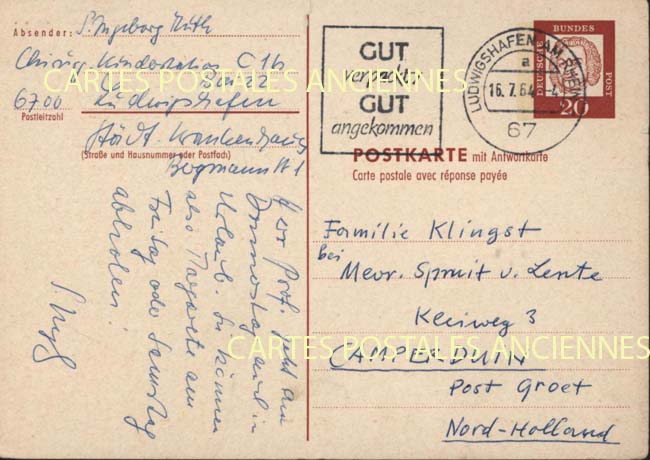 Absender: S. Ingeborg
Chirurg. Kinderstation C 1b
6700 Ludwigshafen
Postleitzahl
Städt. Krankenhaus
(Straße und Hausnummer oder Postfach)
Herr Prof. geht am
Donnerstag in
Urlaub. Sie können
also am
Freitag oder Samstag
abholen!
GUT
verpackt
GUT
angekommen
LUDWIGSHAFEN AM RHEIN
a
16.7.64
67
DEUTSCHE BUNDESPOST
20
POSTKARTE mit Antwortkarte
Carte postale avec réponse payée
Familie Klingst
bei
Mevr. Spruit v. Lente
Kleiweg 3
CAMPERDUIN
Post Groet
Nord-Holland
CARTES POSTALES ANCIENNES
CARTES POSTALES ANCIENNES